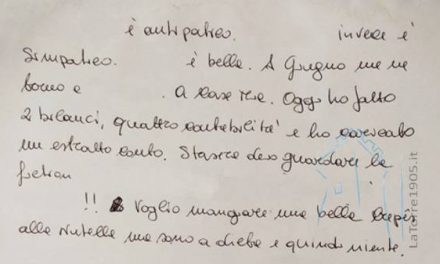 è antipatico. invece è
Simpatico. è bella. A Giugno me ne
torno e . A casa mia. Oggi ho fatto
2 bilanci, quattro contabilità e ho caricato
un estratto conto. Stasera devo guardare la
!! Voglio mangiare una bella crepes
alla Nutella ma sono a dieta e quindi niente.
LaTorre1905.it